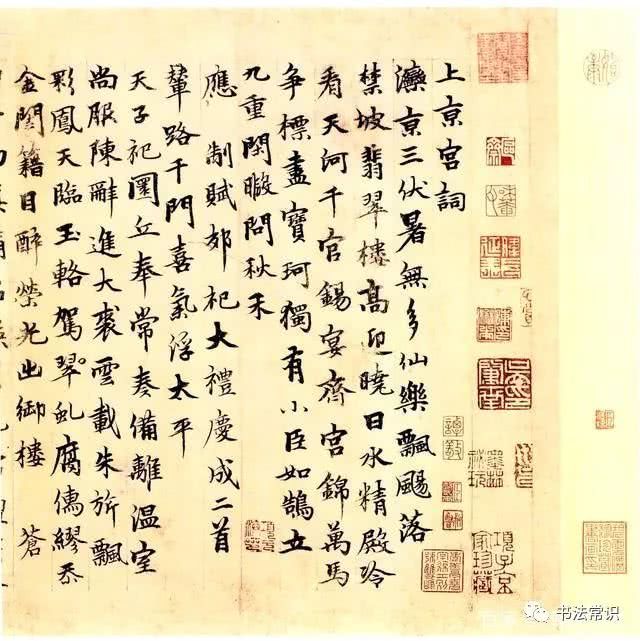 上京宮詞
灤京三伏暑無多仙樂飄颺落
禁坡翡翠樓高迎曉日水精殿冷
看天河千官錫宴齊宮錦萬馬
争標盡寶珂獨有小臣如鵠立
九重閑暇問秋禾
應制賦郊祀大禮慶成二首
輦路千門喜氣浮太平
天子祀圜丘奉常奏備離温室
尚服陳辭進大裘雲載朱旂飄
彩鳳天臨玉輅駕翠虬腐儒繆忝
金閨籍目醉榮光出御樓 蒼
項子京
家珍藏
书法常识